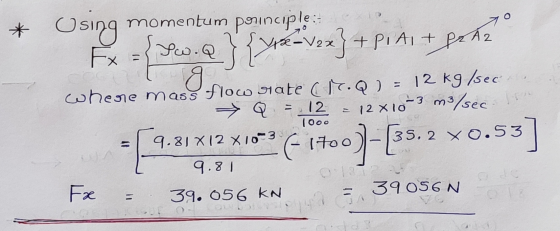 * Using momentum principle:-
Fx = {γw.Q / g} {V1x⁰ - V2x} + P1A1 + P2A2⁰
where mass flow rate (ρ.Q) = 12 kg/sec
⇒ Q = 12/1000 = 12 x 10⁻³ m³/sec
= [9.81 x 12 x 10⁻³ / 9.81 (-1700)] - [35.2 x 0.53]
Fx = 39.056 KN = 39056 N